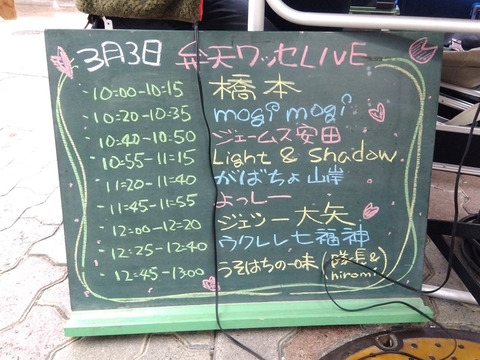 3月3日 弁天ワッセLIVE
10:00-10:15 橋本
10:20-10:35 mogi mogi
10:40-10:50 ジェームス安田
10:55-11:15 Light & Shadow
11:20-11:40 がばちょ山岸
11:45-11:55 よっしー
12:00-12:20 ジェリー大矢
12:25-12:40 ウクレレ七福神
12:45-13:00 うそはちの一味 (隊長& hiromi)